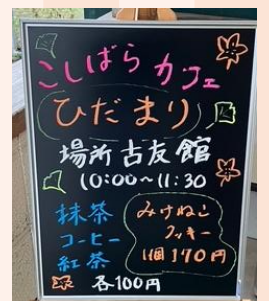 こしばらカフェ
ひだまり
場所古友館
10:00~11:30
抹茶
コーヒー
紅茶
各100円
みけねこ
クッキー
1個170円